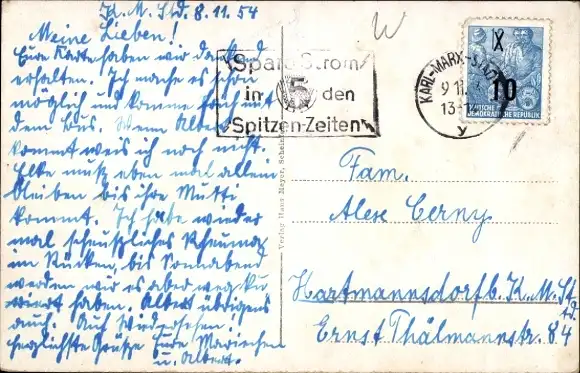 K. M. Std. 8.11.54
Meine Lieben!
Eure Karte haben wir dankend
erhalten. Ich mache es schon
möglich und komme auch mit
dem Bus. Wenn Albert
kommt weis ich noch nicht.
Elke muß eben mal allein
bleiben bis ihre Mutti
kommt. Ich habe wieder
mal scheußliches Rheuma
im Rücken, bis Sonnabend
werden wir es aber weg ku
riert haben. Albert übrigens
auch. Auf Wiedersehen!
herzlichste Grüße Eure Mariechen
u. Albert.
Spare Strom
in den
Spitzen-Zeiten
KARL-MARX-STADT
9 11.
13-
y
X
10
5
DEUTSCHE
DEMOKRATISCHE REPUBLIK
Verlag Hans Meyer,
Fam.
Cerny
Hartmannsdorf b. K. M. St
d.
Ernst Thälmannstr. 84